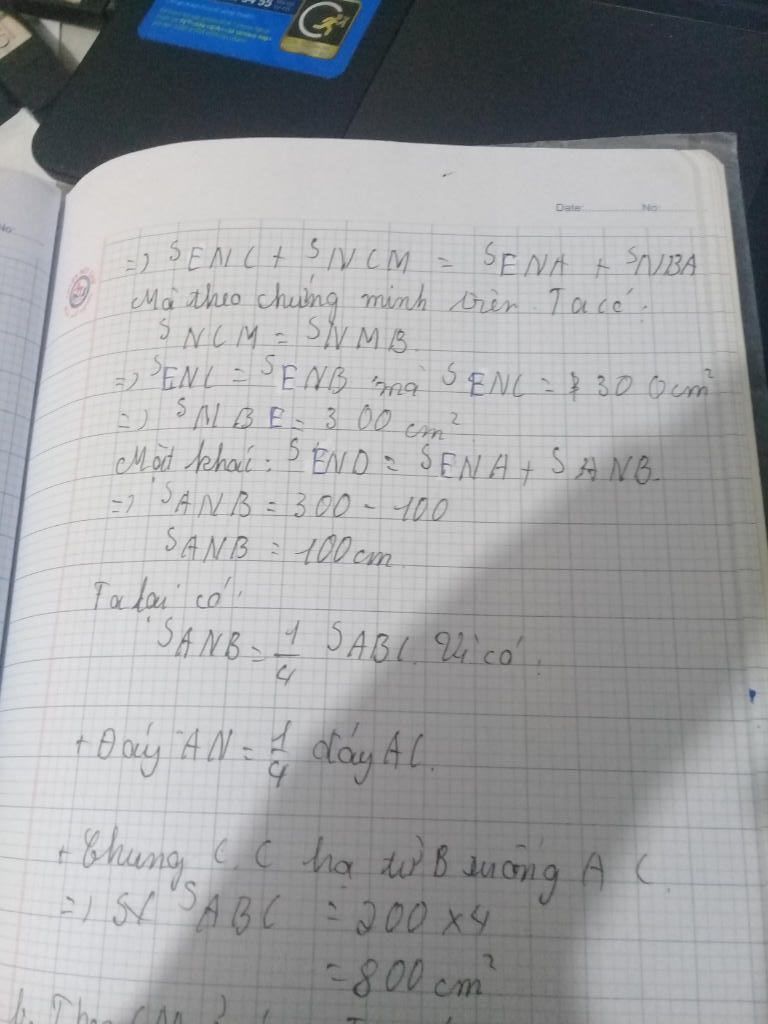 Date: No:
=> SENC + SNCM = SENA + SNBA
Mà theo chứng minh trên. Ta có:
SNCM = SNMB
=> SENC = SENB mà SENC = 300cm²
=> SNBE = 300cm²
Mặt khác: SENB = SENA + SANB.
=> SANB = 300 - 100
SANB = 100cm
Ta lại có:
SANB = 1/4 SABC. Vì có:
+ Đáy AN = 1/4 đáy AC.
+ Chung C.C hạ từ B xuống AC.
=> SABC = 200 x 4
= 800 cm²